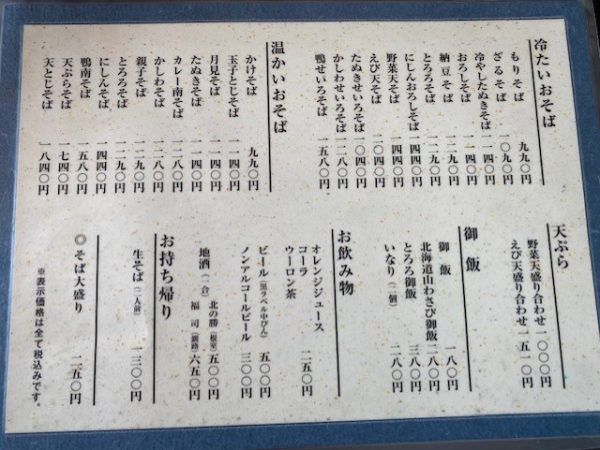 冷たいおそば
もりそば 九九〇円
ざるそば 一〇九〇円
冷やしたぬきそば 一一四〇円
おろしそば 一一四〇円
納豆そば 一二九〇円
とろろそば 一二九〇円
にしんおろしそば 一四四〇円
野菜天そば 一四四〇円
えび天そば 二〇四〇円
たぬきせいろそば
かしわせいろそば 一二八〇円
鴨せいろそば 一五八〇円
温かいおそば
かけそば 九九〇円
玉子とじそば 一一四〇円
月見そば 一一四〇円
たぬきそば 一一四〇円
カレー南そば 一二八〇円
かしわそば 一二八〇円
親子そば 一二九〇円
とろろそば 一二九〇円
にしんそば 一四四〇円
鴨南そば 一五八〇円
天ぷらそば 一七四〇円
天とじそば 一八四〇円
天ぷら
野菜天盛り合わせ 一〇〇〇円
えび天盛り合わせ 一五一〇円
御飯
御飯 一八〇円
北海道山わさび御飯 二八〇円
とろろ御飯 三八〇円
いなり(二個) 二八〇円
お飲み物
オレンジジュース
コーラ
ウーロン茶 二五〇円
ビール(黒ラベル中びん) 五〇〇円
ノンアルコールビール 三〇〇円
地酒(一合) 北の勝(根室) 五〇〇円
福司(釧路) 六五〇円
お持ち帰り
生そば(二人前) 一三〇〇円
◎そば大盛り 二五〇円
※表示価格は全て税込みです。